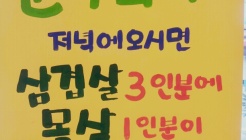 저녁에오시면
삼겹살 3인분에
목살 1인분이